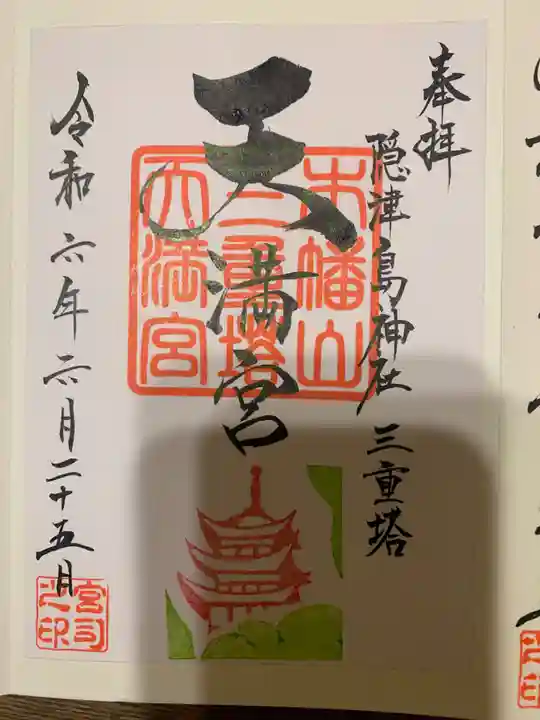 奉拝
隠津島神社 三重塔
天満宮
木幡山
三重塔
天満宮
令和六年六月二十五月
宮司
之印